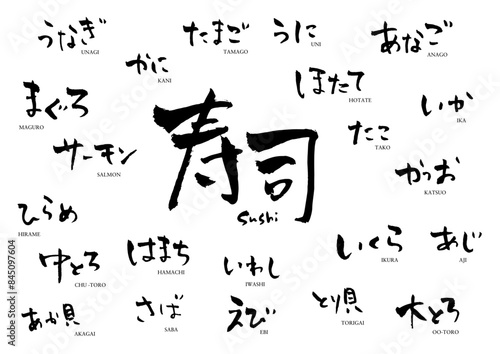 うなぎ
UNAGI
たまご
TAMAGO
うに
UNI
あなご
ANAGO
かに
KANI
ほたて
HOTATE
まぐろ
MAGURO
いか
IKA
サーモン
SALMON
寿司
sushi
たこ
TAKO
かつお
KATSUO
ひらめ
HIRAME
中とろ
CHU -TORO
はまち
HAMACHI
いわし
IWASHI
いくら
IKURA
あじ
AJI
あか貝
AKAGAI
さば
SABA
えび
EBI
とり貝
TORIGAI
大とろ
OO-TORO
Adobe Stock | #845097604